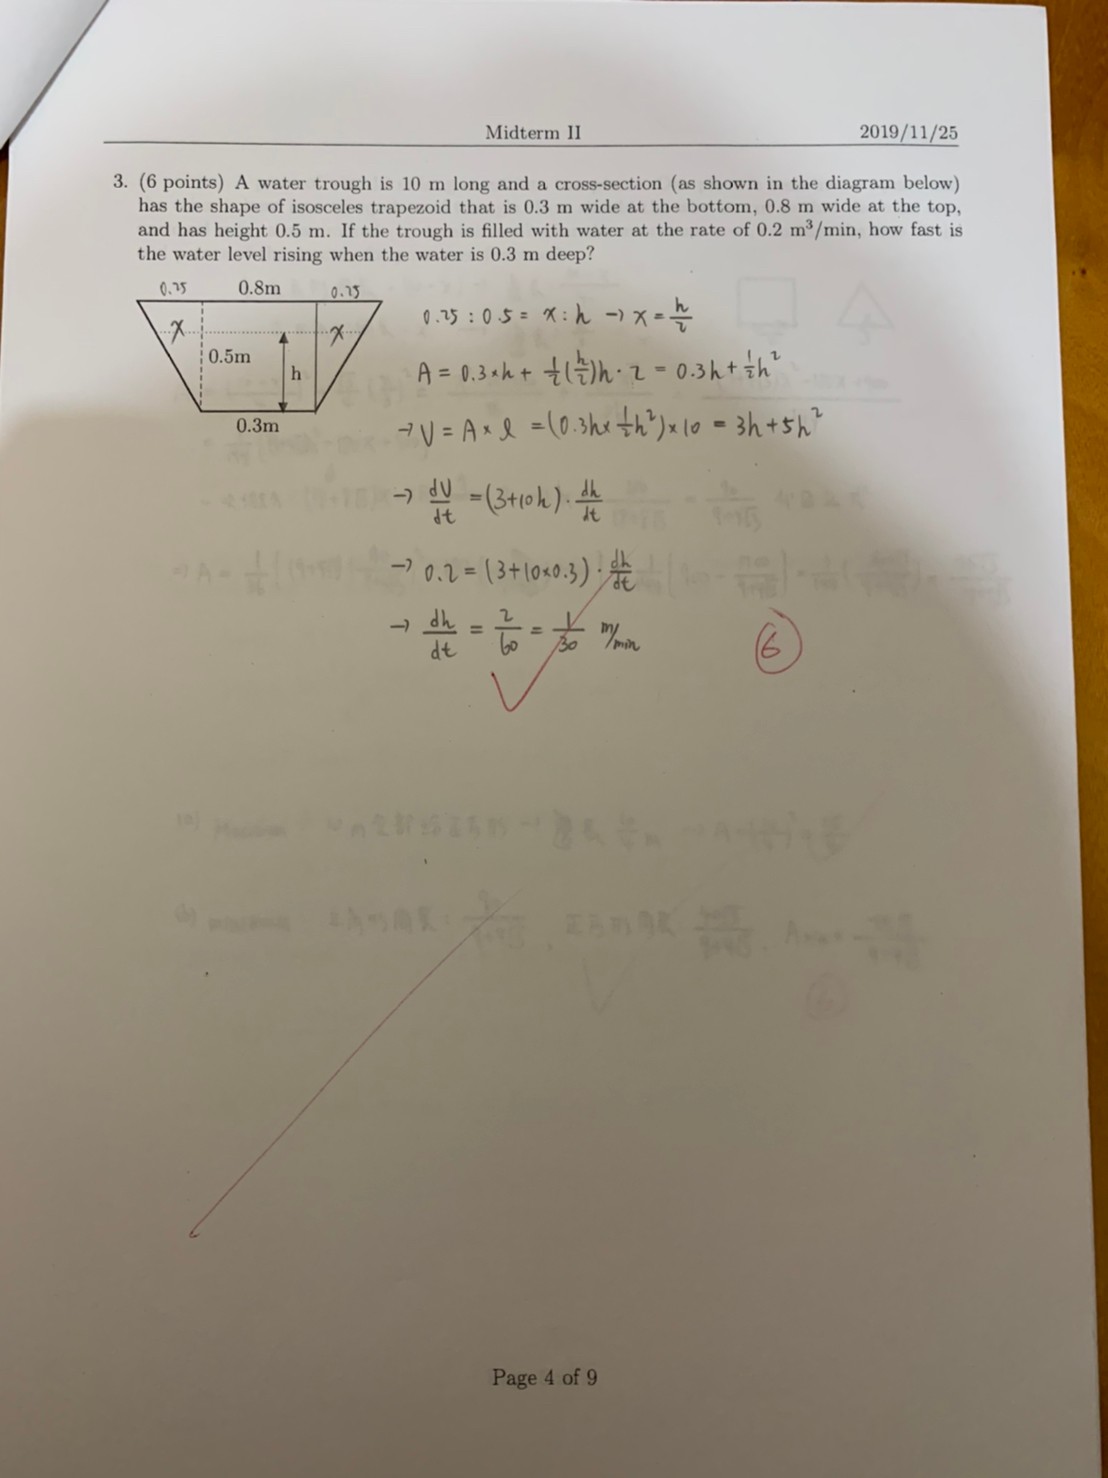 Midterm II 2019/11/25
3. (6 points) A water trough is 10 m long and a cross-section (as shown in the diagram below)
has the shape of isosceles trapezoid that is 0.3 m wide at the bottom, 0.8 m wide at the top,
and has height 0.5 m. If the trough is filled with water at the rate of 0.2 m³/min, how fast is
the water level rising when the water is 0.3 m deep?
0.25 0.8m 0.25
x x
0.5m
h
0.3m
0.25 : 0.5 = x : h → x = h/2
A = 0.3×h + 1/2(h/2)h · 2 = 0.3h + 1/2h²
→ V = A × l = (0.3h× 1/2h²)×10 = 3h+5h²
→ dV/dt = (3+10h) · dh/dt
→ 0.2 = (3+10×0.3) · dh/dt
→ dh/dt = 2/60 = 1/30 m/min
6
Page 4 of 9